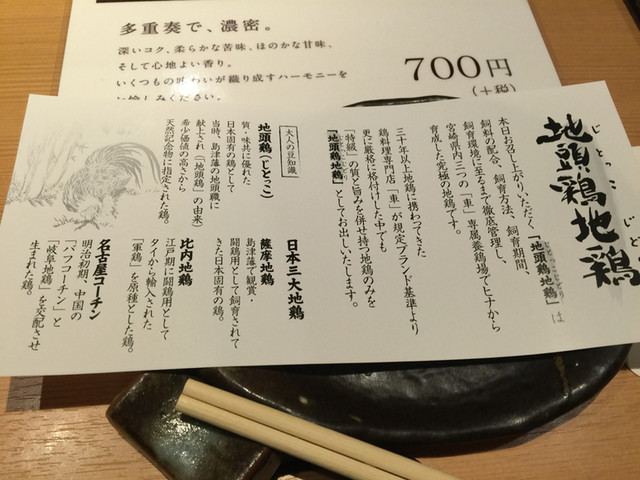 多重奏で、濃密。
深いコク、柔らかな苦味、ほのかな甘味、
そして心地よい香り。
いくつもの味わいが織り成すハーモニーを
お愉しみください。
700円
(+税)
地頭鶏地鶏
じとっこ
本日お召し上がりいただく「地頭鶏地鶏」は
飼料の配合、飼育方法、飼育期間、
飼育環境に至るまで徹底管理し、
宮崎県内三つの「車」専属養鶏場でヒナから
育成した究極の地鶏です。
三十年以上地鶏に携わってきた
鶏料理専門店「車」が規定ブランド基準より
更に厳格に格付けした中でも
「特級」の質と旨みを併せ持つ地鶏のみを
「地頭鶏地鶏」としてお出しいたします。
大人の豆知識
地頭鶏(じとっこ)
質・味共に優れた
日本固有の鶏として
当時、島津藩の地頭職に
献上され(「地頭鶏」の由来)
希少価値の高さから
天然記念物に指定された鶏。
日本三大地鶏
薩摩地鶏
島津藩で観賞・
闘鶏用として飼育されて
きた日本固有の鶏。
比内地鶏
江戸期に闘鶏用として
タイから輸入された
「軍鶏」を原種とした鶏。
名古屋コーチン
明治初期、中国の
「バフコーチン」と
「岐阜地鶏」を交配させ
生まれた鶏。